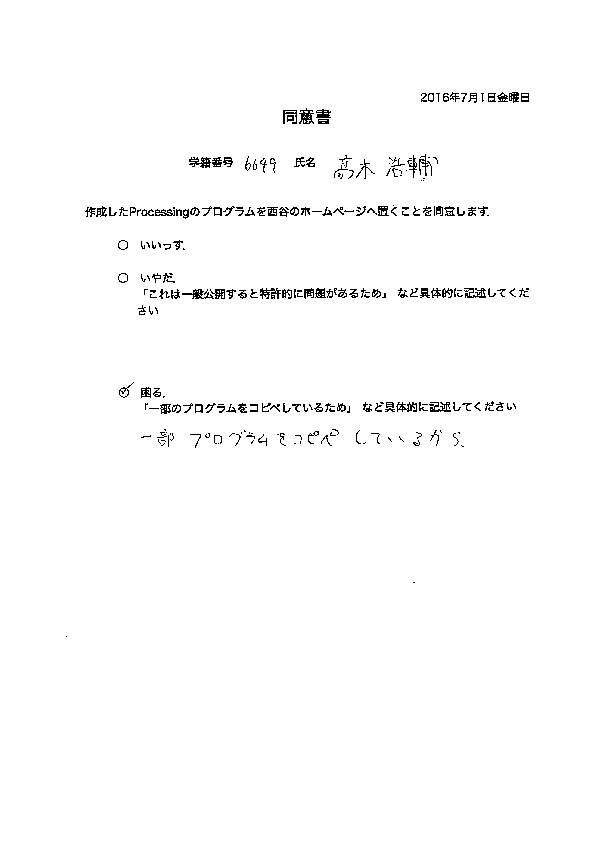 2016年7月1日金曜日
同意書
学籍番号 6649 氏名 高木 浩輔
作成したProcessingのプログラムを西谷のホームページへ置くことを同意します.
○ いいっす.
○ いやだ.
「これは一般公開すると特許的に問題があるため」 など具体的に記述してくだ
さい
○ 困る.
「一部のプログラムをコピペしているため」 など具体的に記述してください
一部 プログラムをコピペ しているから.